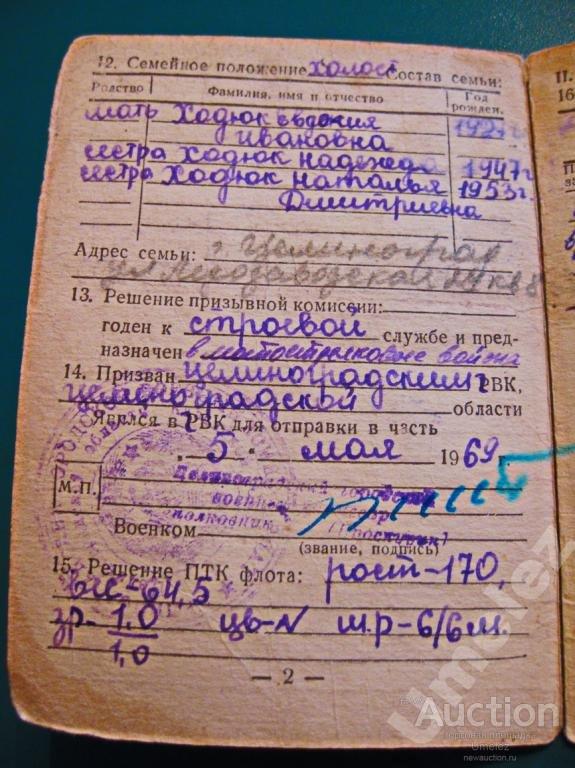 12. Семейное положение холост Состав семьи:
Родство Фамилия, имя и отчество Год рожден.
мать Ходюк Евдокия 192 г
Ивановна
сестра Ходюк Надежда 1947 г
сестра Ходюк Наталья 1953 г.
Дмитриевна
Адрес семьи: г. Целиноград
ул
13. Решение призывной комиссии:
годен к строевой службе и пред-
назначен в мотострелковые войска
14. Призван Целиноградским г РВК,
Целиноградской области
Явился в г РВК для отправки в часть
„ 5 " мая 1969 г.
М.П.
военный
полковник
Военком
(звание, подпись)
15. Решение ПТК флота: рост-170,
вес-64,5
зр- 1,0 цв-N ш.р-6/6 м.
1,0
— 2 —
II.
16
Umelez
Auction
Umelez
newauction.ru